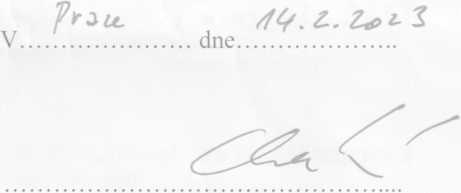 V Praze dne 14.2.2023